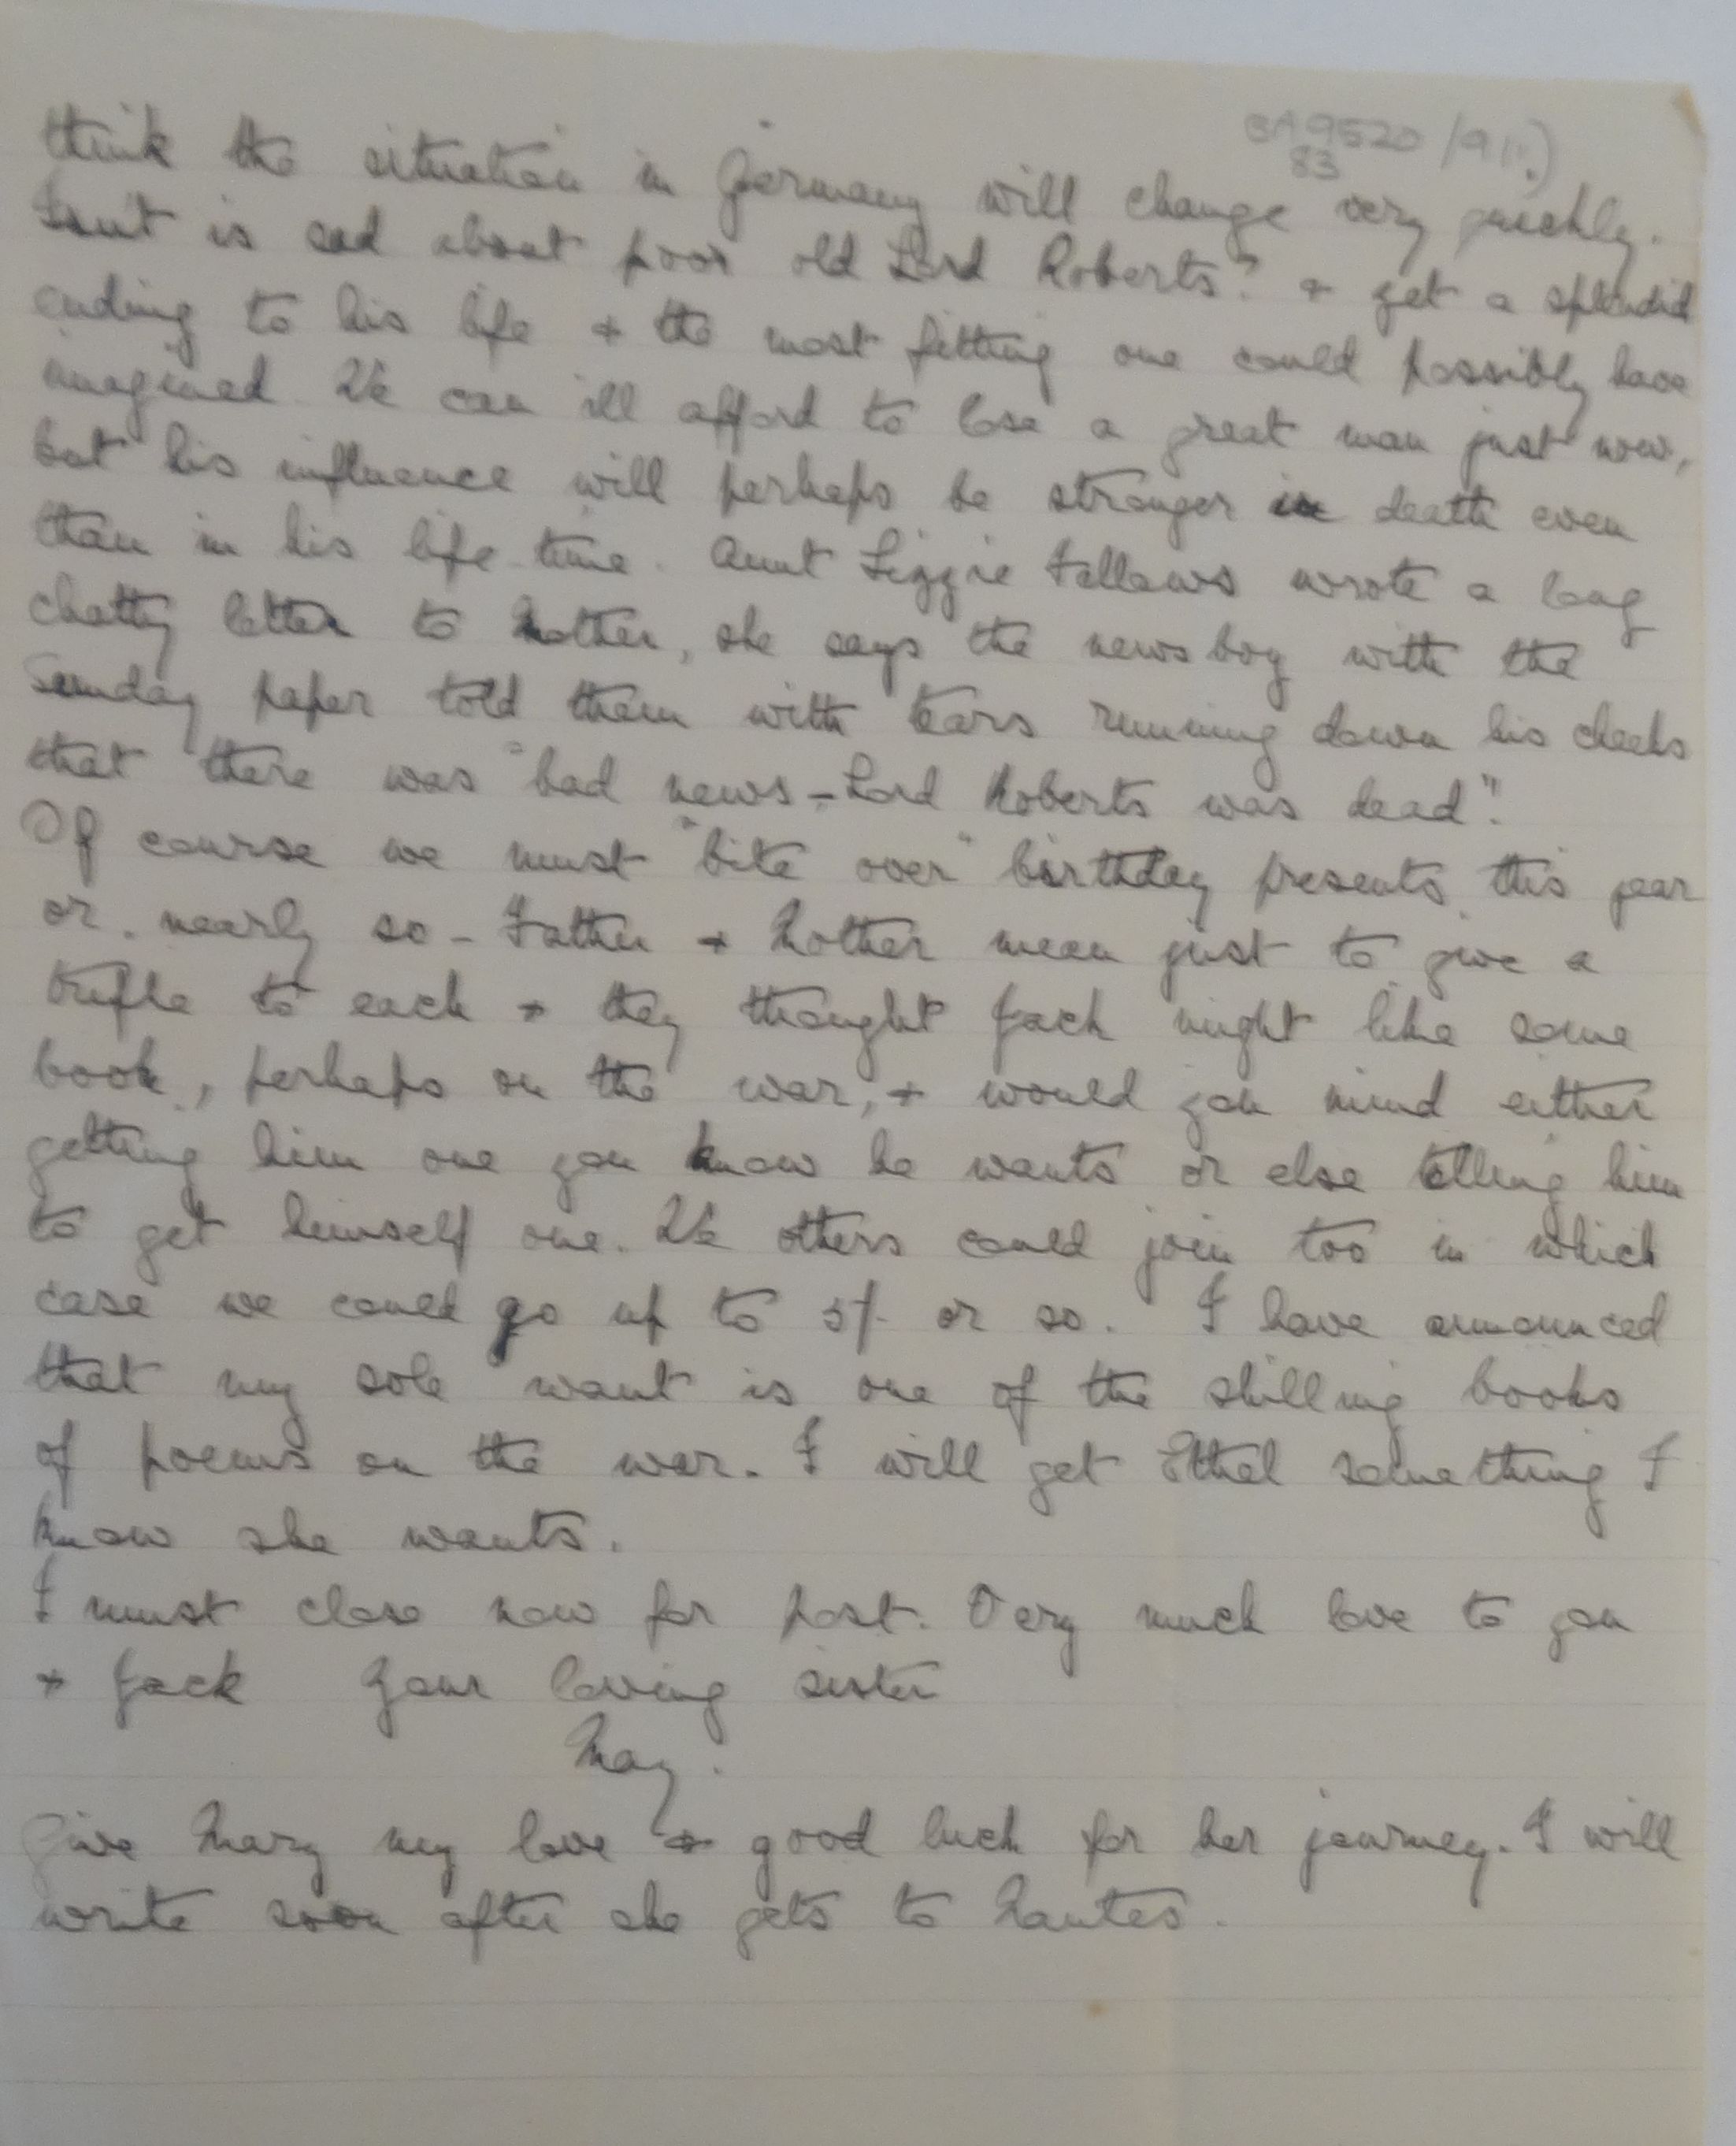 BA9520/9(1.)
83
think the situation in Germany will change very quickly.
Isn't is sad about poor old Lord Roberts? + yet a splendid
ending to his life + the most fitting one could possibly have
imagined. We can ill afford to lose a great man just now,
but his influence will perhaps be stronger in death even
than in his life time. Aunt Lizzie Fellows wrote a long
chatty letter to Mother, she says the news boy with the
Sunday paper told them with tears running down his cheeks
that there was "bad news - Lord Roberts was dead".
Of course we must "bite over" birthday presents this year
or nearly so - Father + Mother mean just to give a
trifle to each + they thought Jack might like some
book, perhaps on the war, + would you mind either
getting him one you know he wants or else telling him
to get himself one. We others could join too in which
case we could go up to 5/- or so. I have announced
that my sole want is one of the shilling books
of poems on the war. I will get Ethel something I
know she wants.
I must close now for post. Very much love to you
+ Jack Your loving sister
May.
Give Mary my love + good luck for her journey. I will
write soon after she gets to Nantes.